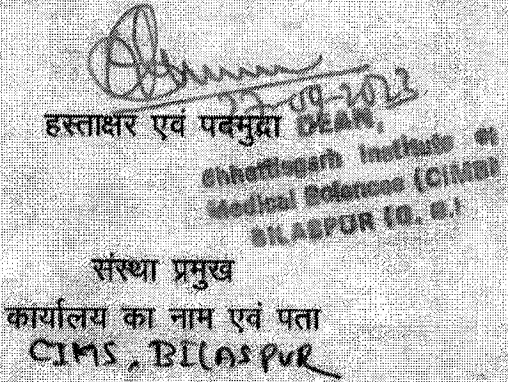 22-09-2023
हस्ताक्षर एवं पदमुद्रा DEAN,
Chhattisgarh Institute of
Medical Sciences (CIMS)
BILASPUR (C. G.)
संस्था प्रमुख
कार्यालय का नाम एवं पता
CIMS, BILASPUR